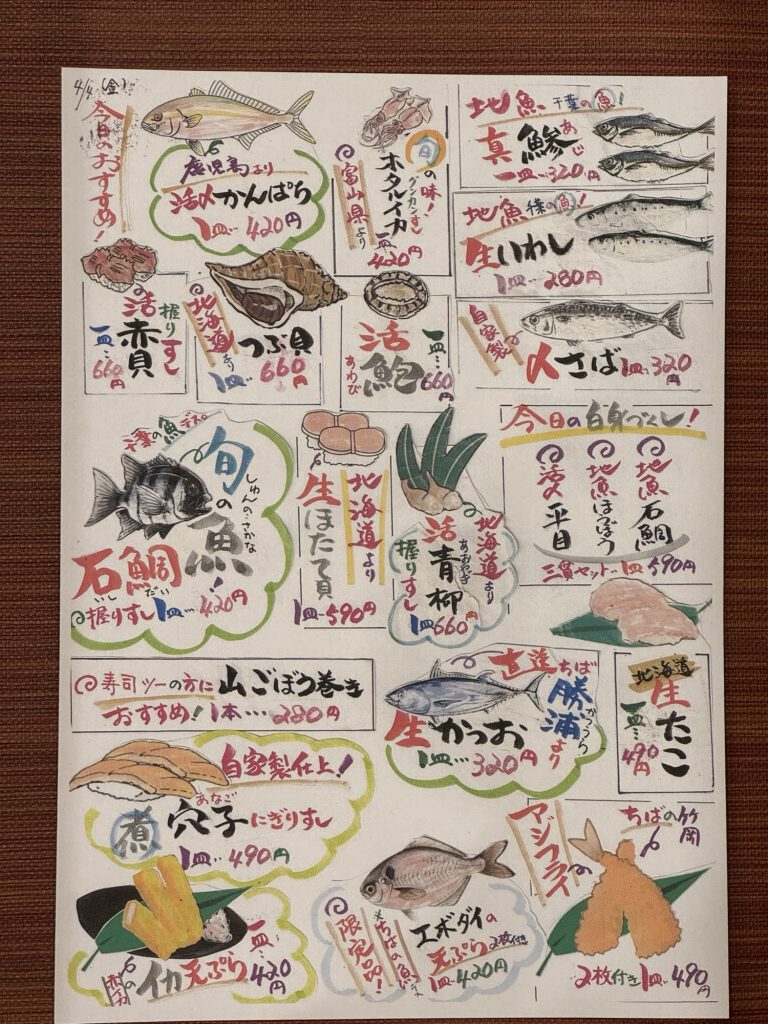 4/4(金)
今日のおすすめ!
鹿児島より
活〆かんぱち
1皿…420円
旬の味!
グンカンすし
ホタルイカ
富山県より
一皿…420円
地魚 千葉の魚
真鯵
あじ
一皿…320円
地魚
生いわし
1皿…280円
自家製
〆さば 1皿…320円
握りすし
活赤貝
一皿…660円
北海道より
つぶ貝
1皿…660円
活鮑
あわび
一皿…660円
千葉の魚デス。
旬の魚!
しゅんの…さかな
石鯛
いしだい
握りすし 1皿…420円
北海道より
生ほたて貝
1皿…590円
北海道より
活青柳
あおやぎ
握りすし
1皿660円
今日の白身づくし!
地魚石鯛
地魚ほうぼう
活〆平目
三貫セット…1皿590円
寿司ツーの方に 山ごぼう巻き
おすすめ! 1本…280円
直送ちば
勝浦より
かつうら
生かつお
1皿…320円
北海道
生たこ
一皿…490円
自家製仕上!
煮穴子にぎりすし
あなご
1皿…490円
イカ天ぷら
一皿…420円
限定品!
ちばの魚
エボダイの
天ぷら 2枚付き
1皿…420円
ちばの竹岡
アジフライ
2枚付き 1皿…490円